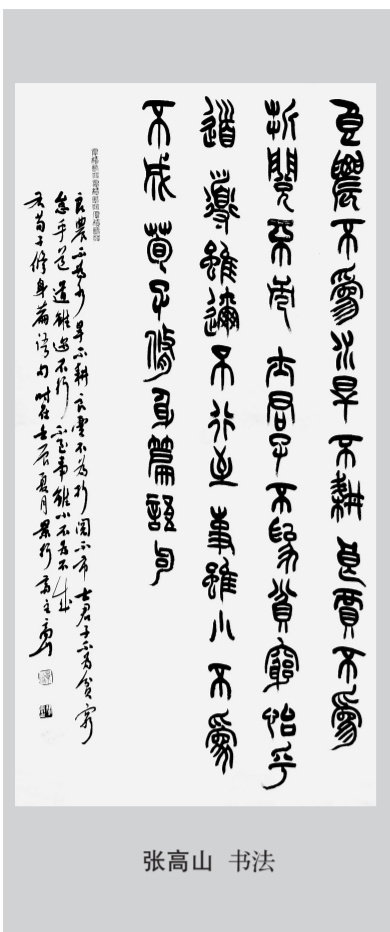 良農不為水旱不耕良賈不為
折閱不市士君子不為貧窮怠乎
道道雖邇不行不至事雖小不為
不成荀子修身篇語句
良農不為水旱不耕良賈不為折閱不市士君子不為貧窮
怠乎道道雖邇不行不至事雖小不為不成
右荀子修身篇語句時在壬辰夏月景行齋主高山
张高山 书法